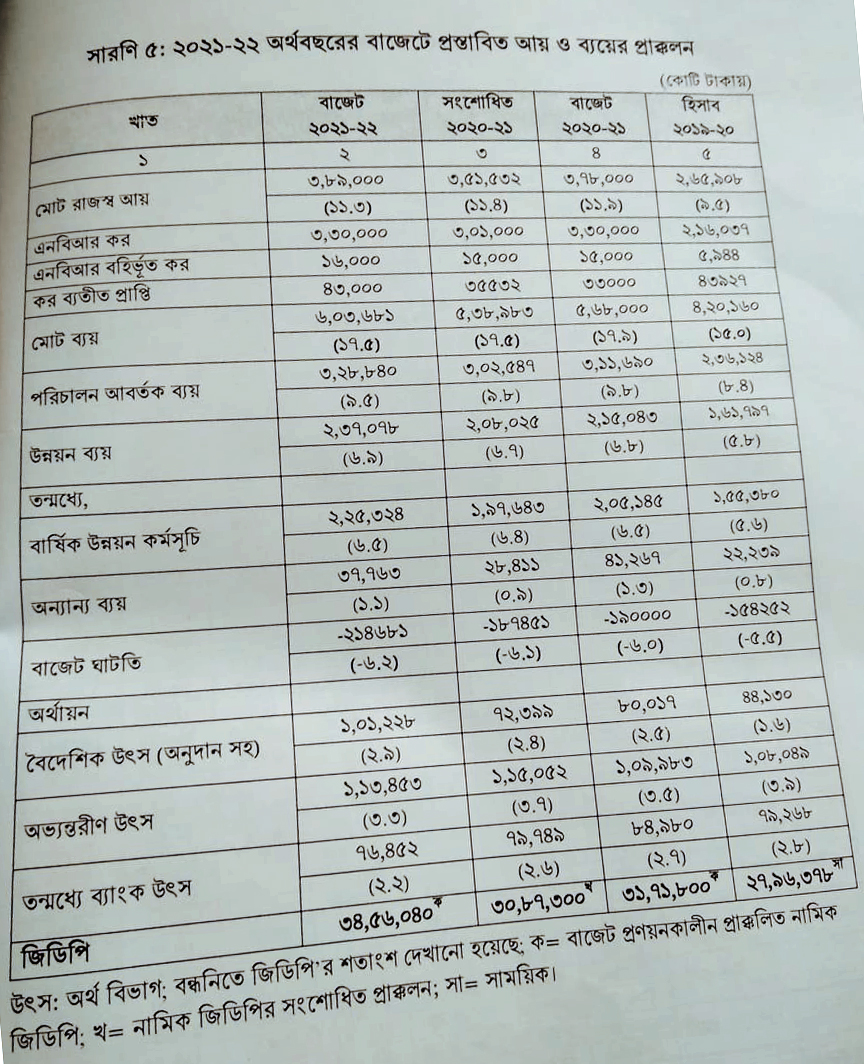 সারণি ৫: ২০২১-২২ অর্থবছরের বাজেটে প্রস্তাবিত আয় ও ব্যয়ের প্রাক্কলন
(কোটি টাকায়)
খাত বাজেট ২০২১-২২ সংশোধিত ২০২০-২১ বাজেট ২০২০-২১ হিসাব ২০১৯-২০
১ ২ ৩ ৪ ৫
মোট রাজস্ব আয় ৩,৮৯,০০০ ৩,৫১,৫৩২ ৩,৭৮,০০০ ২,৬৫,৯০৮
(১১.৩) (১১.৪) (১১.৯) (৯.৫)
এনবিআর কর ৩,৩০,০০০ ৩,০১,০০০ ৩,৩০,০০০ ২,১৬,০৩৭
এনবিআর বহির্ভূত কর ১৬,০০০ ১৫,০০০ ১৫,০০০ ৫,৯৪৪
কর ব্যতীত প্রাপ্তি ৪৩,০০০ ৩৫৫৩২ ৩৩০০০ ৪৩৯২৭
মোট ব্যয় ৬,০৩,৬৮১ ৫,৩৮,৯৮৩ ৫,৬৮,০০০ ৪,২০,১৬০
(১৭.৫) (১৭.৫) (১৭.৯) (১৫.০)
পরিচালন আবর্তক ব্যয় ৩,২৮,৮৪০ ৩,০২,৫৪৭ ৩,১১,৬৯০ ২,৩৬,১২৪
(৯.৫) (৯.৮) (৯.৮) (৮.৪)
উন্নয়ন ব্যয় ২,৩৭,০৭৮ ২,০৮,০২৫ ২,১৫,০৪৩ ১,৬১,৭৯৭
(৬.৯) (৬.৭) (৬.৮) (৫.৮)
তন্মধ্যে,
বার্ষিক উন্নয়ন কর্মসূচি ২,২৫,৩২৪ ১,৯৭,৬৪৩ ২,০৫,১৪৫ ১,৫৫,৩৮০
(৬.৫) (৬.৪) (৬.৫) (৫.৬)
অন্যান্য ব্যয় ৩৭,৭৬৩ ২৮,৪১১ ৪১,২৬৭ ২২,২৩৯
(১.১) (০.৯) (১.৩) (০.৮)
বাজেট ঘাটতি -২১৪৬৮১ -১৮৭৪৫১ -১৯০০০০ -১৫৪২৫২
(-৬.২) (-৬.১) (-৬.০) (-৫.৫)
অর্থায়ন
বৈদেশিক উৎস (অনুদান সহ) ১,০১,২২৮ ৭২,৩৯৯ ৮০,০১৭ ৪৪,১৩০
(২.৯) (২.৪) (২.৫) (১.৬)
অভ্যন্তরীণ উৎস ১,১৩,৪৫৩ ১,১৫,০৫২ ১,০৯,৯৮৩ ১,০৮,০৪৯
(৩.৩) (৩.৭) (৩.৫) (৩.৯)
তন্মধ্যে ব্যাংক উৎস ৭৬,৪৫২ ৭৯,৭৪৯ ৮৪,৯৮০ ৭৯,২৬৮
(২.২) (২.৬) (২.৭) (২.৮)
জিডিপি ৩৪,৫৬,০৪০ক ৩০,৮৭,৩০০খ ৩১,৭১,৮০০ক ২৭,৯৬,৩৭৮সা
উৎস: অর্থ বিভাগ; বন্ধনিতে জিডিপি'র শতাংশ দেখানো হয়েছে; ক= বাজেট প্রণয়নকালীন প্রাক্কলিত নামিক
জিডিপি; খ= নামিক জিডিপির সংশোধিত প্রাক্কলন; সা= সাময়িক।